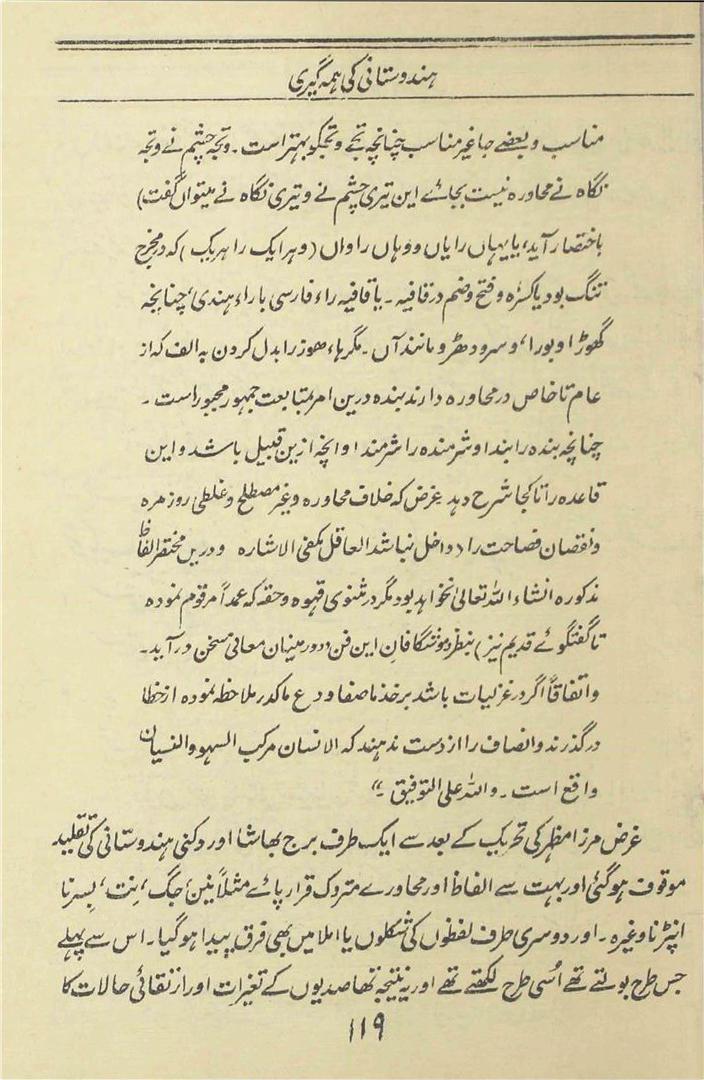 ہندوستانی کی ہمہ گیری
مناسب و بعضے جا غیر مناسب چنانچہ تجے و تجکو بہتر است۔ و تجہ چشم نے و تجہ
نگاہ نے محاورہ نیست بجائے این تیری چشم نے و تیری نگاہ نے میتواں گفت)
باختصار آید، یا یہاں را یاں و وہاں را واں (و ہر ایک را ہریک) کہ در مخرج
تنگ بود یا کسرہ و فتح و ضم در قافیہ۔ یا قافیہ راء فارسی با راء ہندی، چنانچہ
گھوڑا و بورا، و سر و دھڑ و مانند آں۔ مگر ہاء ھوز را بدل کردن بہ الف کہ از
عام تا خاص در محاورہ دارند بندہ درین امر بمتابعت جمہور مجبور است۔
چنانچہ بندہ را بندا و شرمندہ را شرمندا و انچہ ازین قبیل باشد و این
قاعدہ را تا کجا شرح دہد غرض کہ خلاف محاورہ و غیر مصطلح و غلطی روزمرہ
و نقصان فصاحت را (دواخل نباشد العاقل تکفی الاشارہ و دریں مختصر الفاظ
مذکورہ انشاء اللہ تعالیٰ نخواہد بود مگر در مثنوی قہوہ و حقہ کہ عمداً مرقوم نمودہ
تا گفتگوئے قدیم نیز) بنظر موشگافانِ این فن و دوربینان معانی سخن در آید۔
و اتفاقاً اگر در غزلیات باشد بر خذ ما صفا و دع ما کدر ملاحظہ نمودہ از خطا
درگذرند و انصاف را از دست ندہند کہ الانسان مرکب السہو والنسیان
واقع است۔ واللہ علی التوفیق۔"
غرض مرزا مظہر کی تحریک کے بعد سے ایک طرف برج بھاشا اور دکنی ہندوستانی کی تقلید
موقوف ہوگئی اور بہت سے الفاظ اور محاورے متروک قرار پائے مثلاً نین، جگ، نت، بسرنا
انپڑنا وغیرہ۔ اور دوسری طرف لفظوں کی شکلوں یا املا میں بھی فرق پیدا ہوگیا۔ اس سے پہلے
جس طرح بولتے تھے اُسی طرح لکھتے تھے اور یہ نتیجہ تھا صدیوں کے تغیرات اور ارتقائی حالات کا
۱۱۹